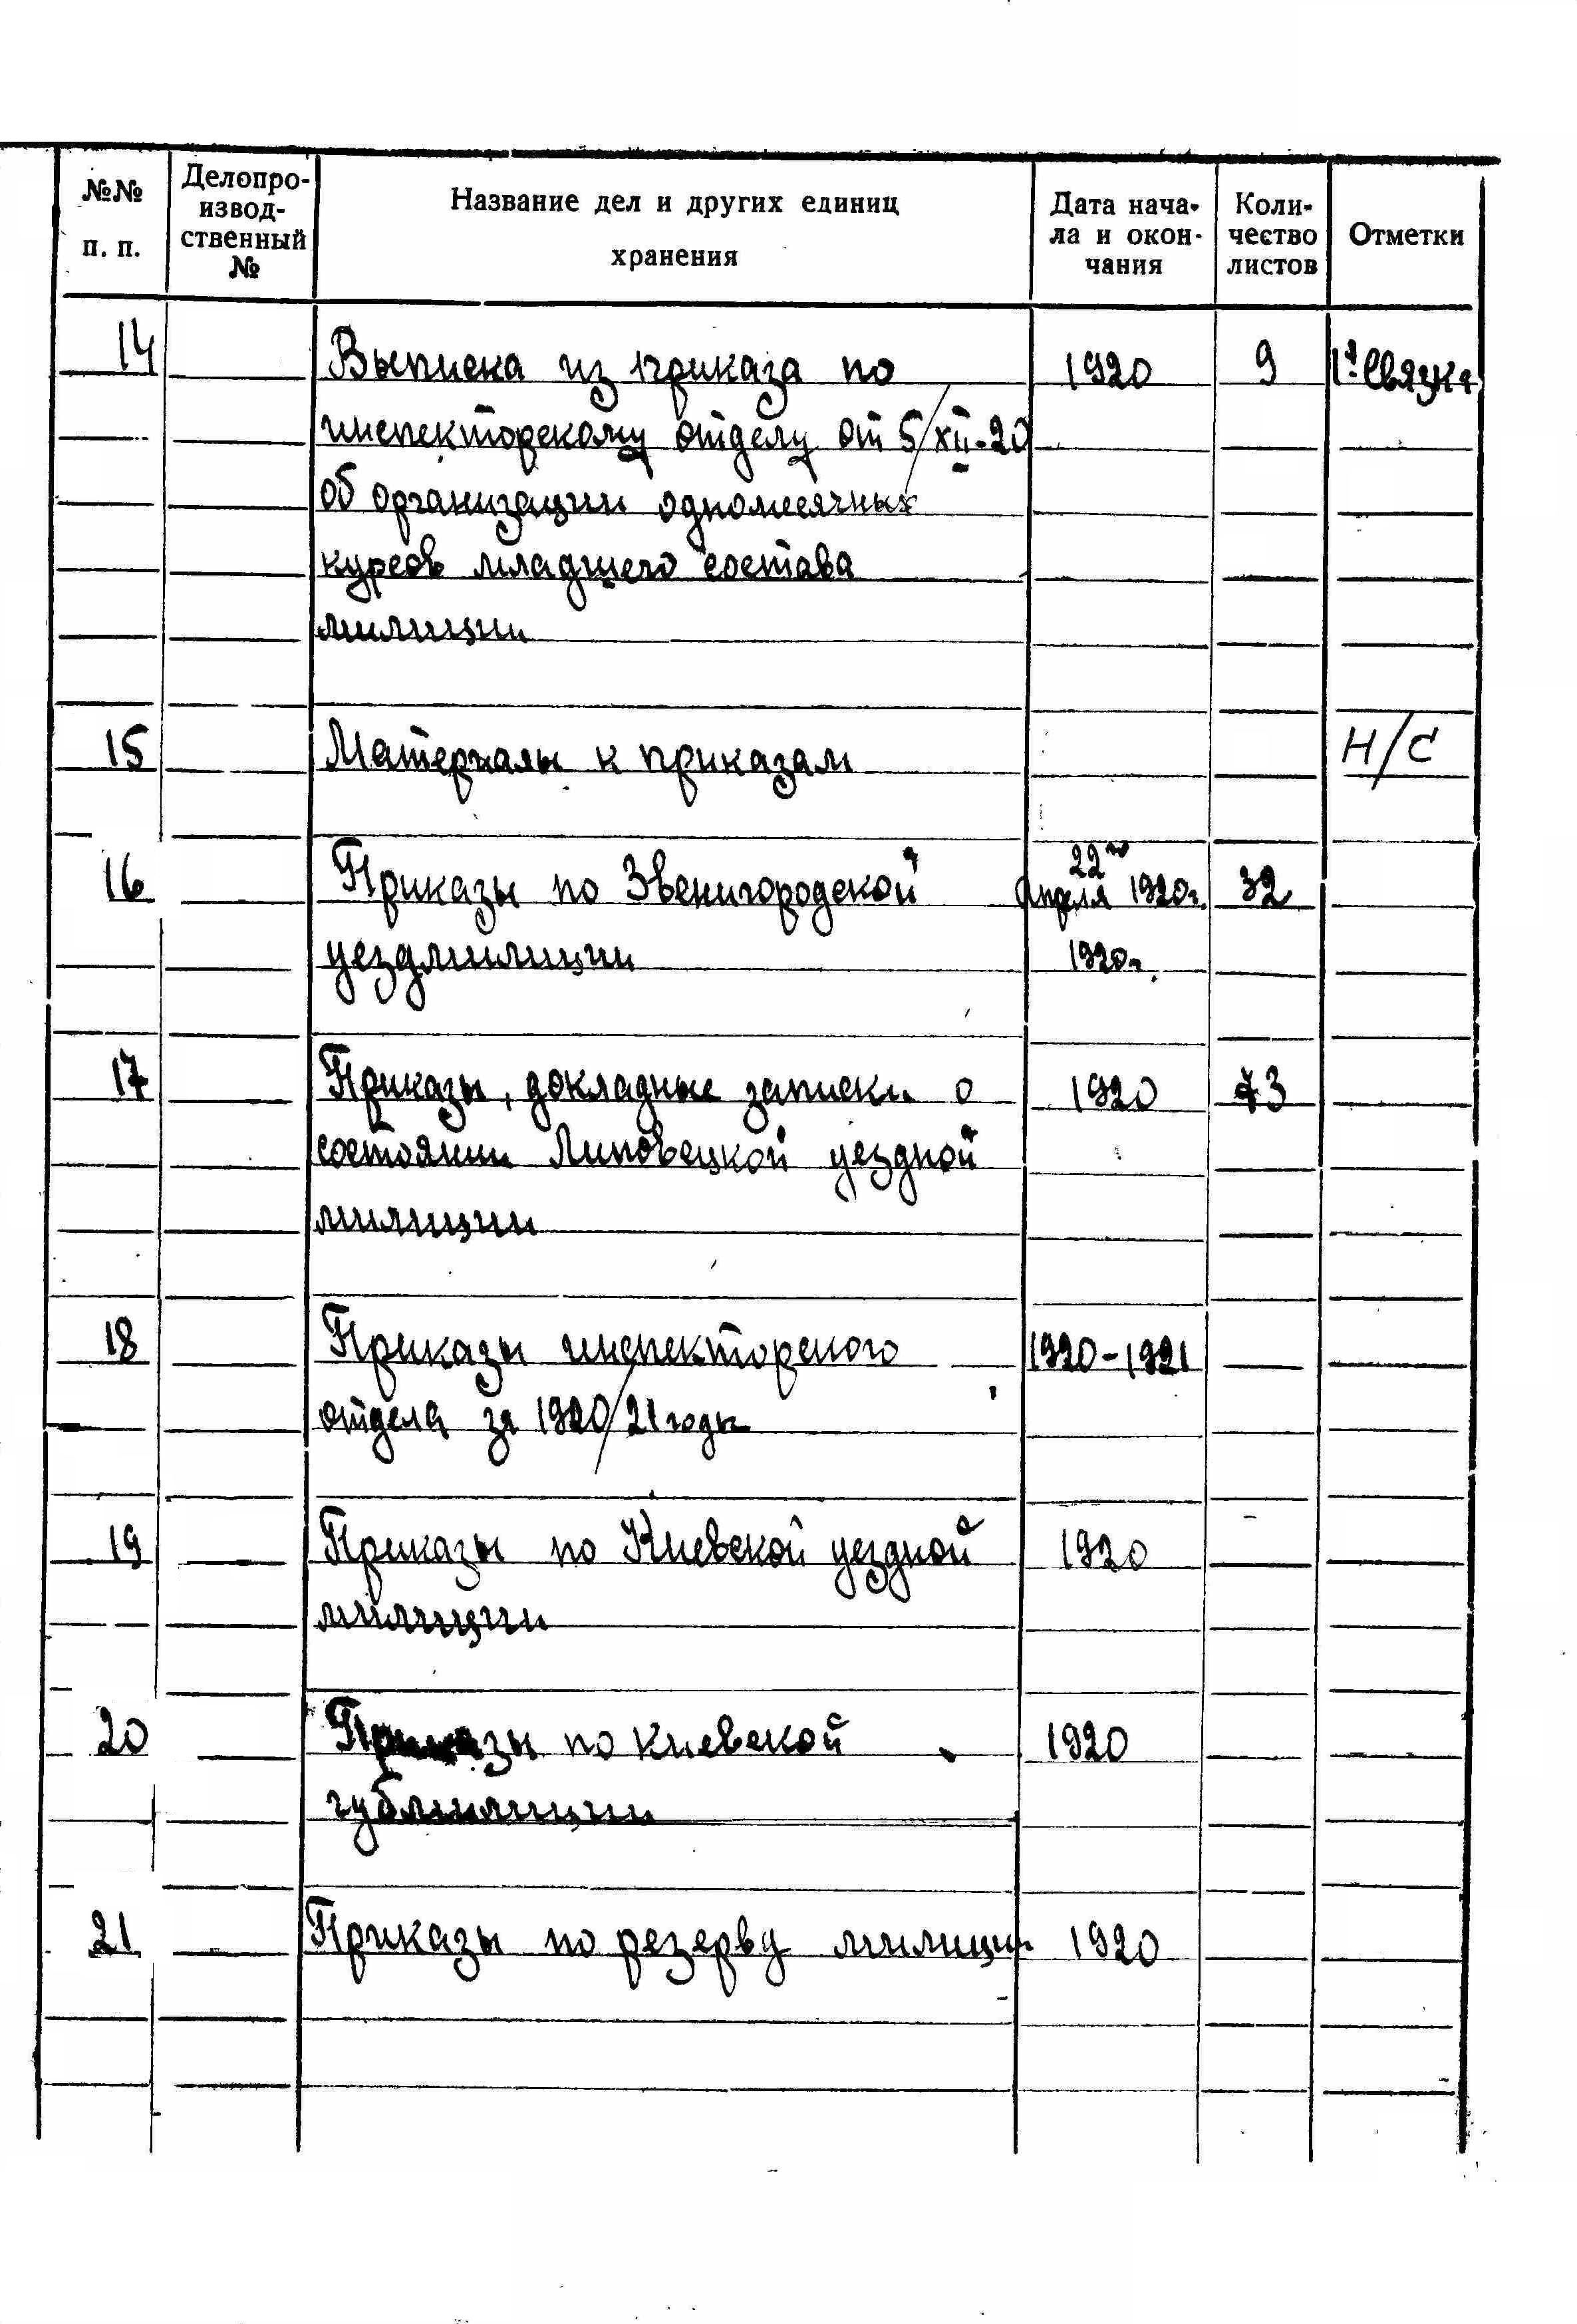 №№ п. п.
Делопро-
извод-
ственный
№
Название дел и других единиц
хранения
Дата нача-
ла и окон-
чания
Коли-
чество
листов
Отметки
14 Выписка из приказа по 1920 9 1я Связка
инспекторскому отделу от 5/XII-20
об организации одномесячных
курсов младшего состава
милиции
15 Материалы к приказам Н/С
22го
16 Приказы по Звенигородской апреля 1920г. 32
уездмилиции 1920г.
17 Приказы, докладные записки о 1920 73
состоянии Липовецкой уездной
милиции
18 Приказы инспекторского 1920-1921
отдела за 1920/21 годы
19 Приказы по Киевской уездной 1920
милиции
20 Приказы по Киевской 1920
губмилиции
21 Приказы по резерву милиции 1920